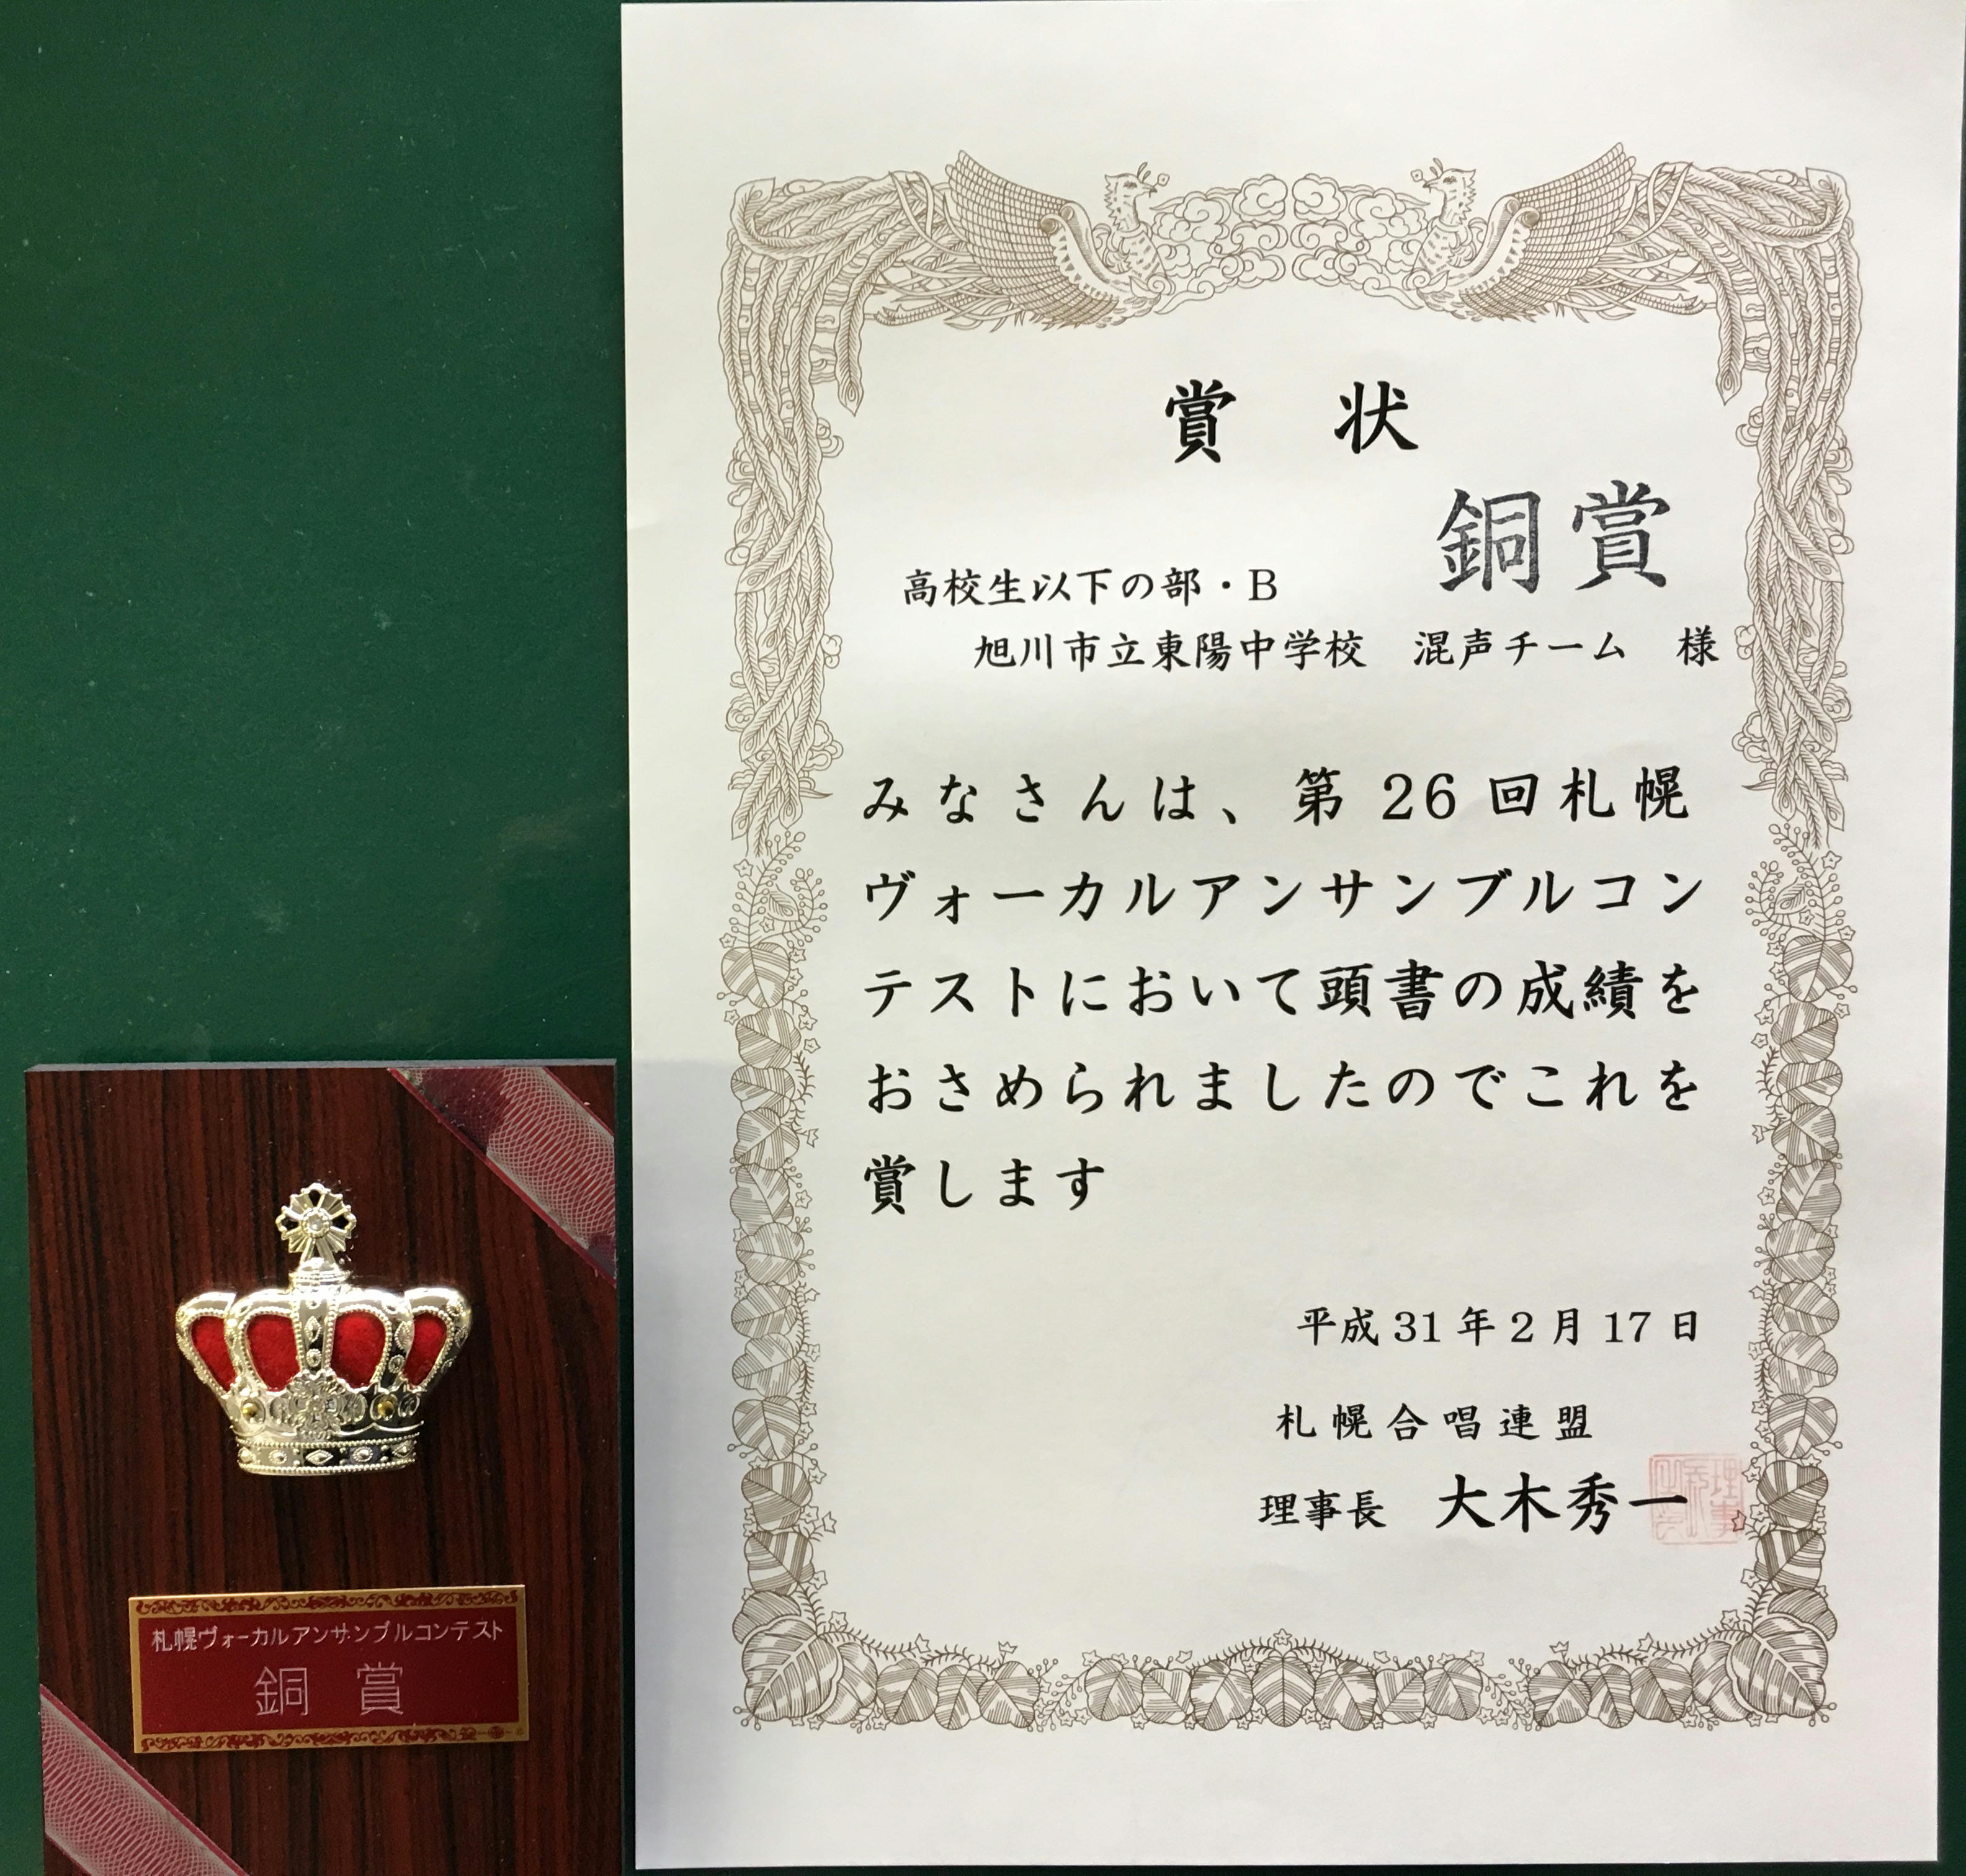 賞 状
銅賞
高校生以下の部・B
旭川市立東陽中学校 混声チーム 様
みなさんは、第26回札幌
ヴォーカルアンサンブルコン
テストにおいて頭書の成績を
おさめられましたのでこれを
賞します
平成31年2月17日
札幌合唱連盟
理事長 大木秀一
札幌ヴォーカルアンサンブルコンテスト
銅 賞